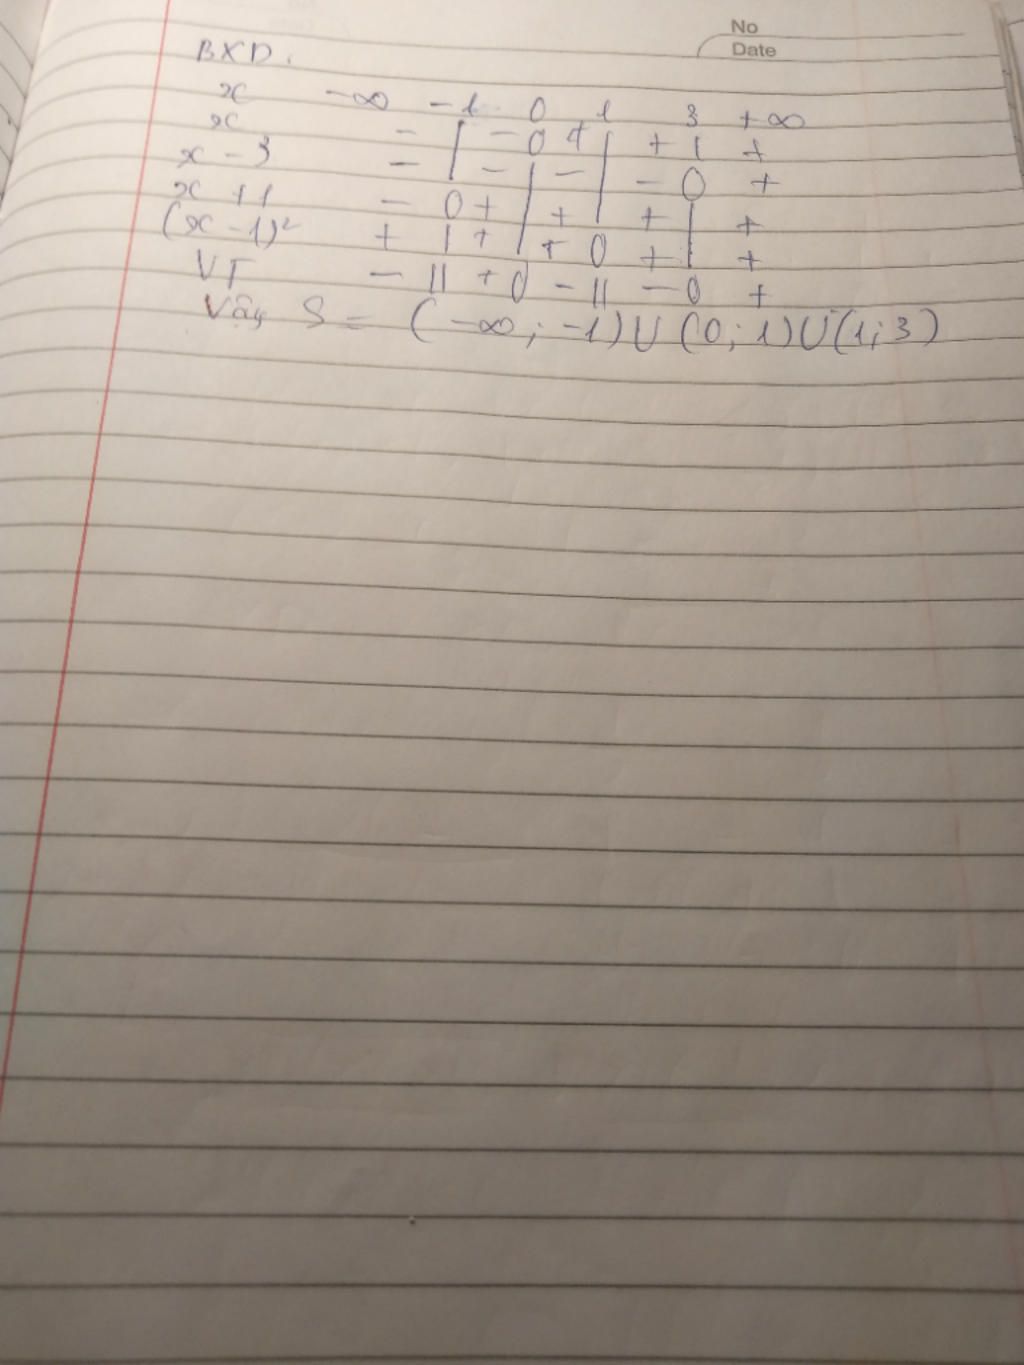 No
Date
BXD.
x -∞ -1 0 1 3 +∞
x - | - 0 + | + | +
x - 3 - | - | - | - 0 +
x + 1 - 0 + | + | + | +
(x - 1)² + | + | + 0 + | +
VT - || + 0 - || - 0 +
Vậy S = (-∞; -1) U (0; 1) U (1; 3)